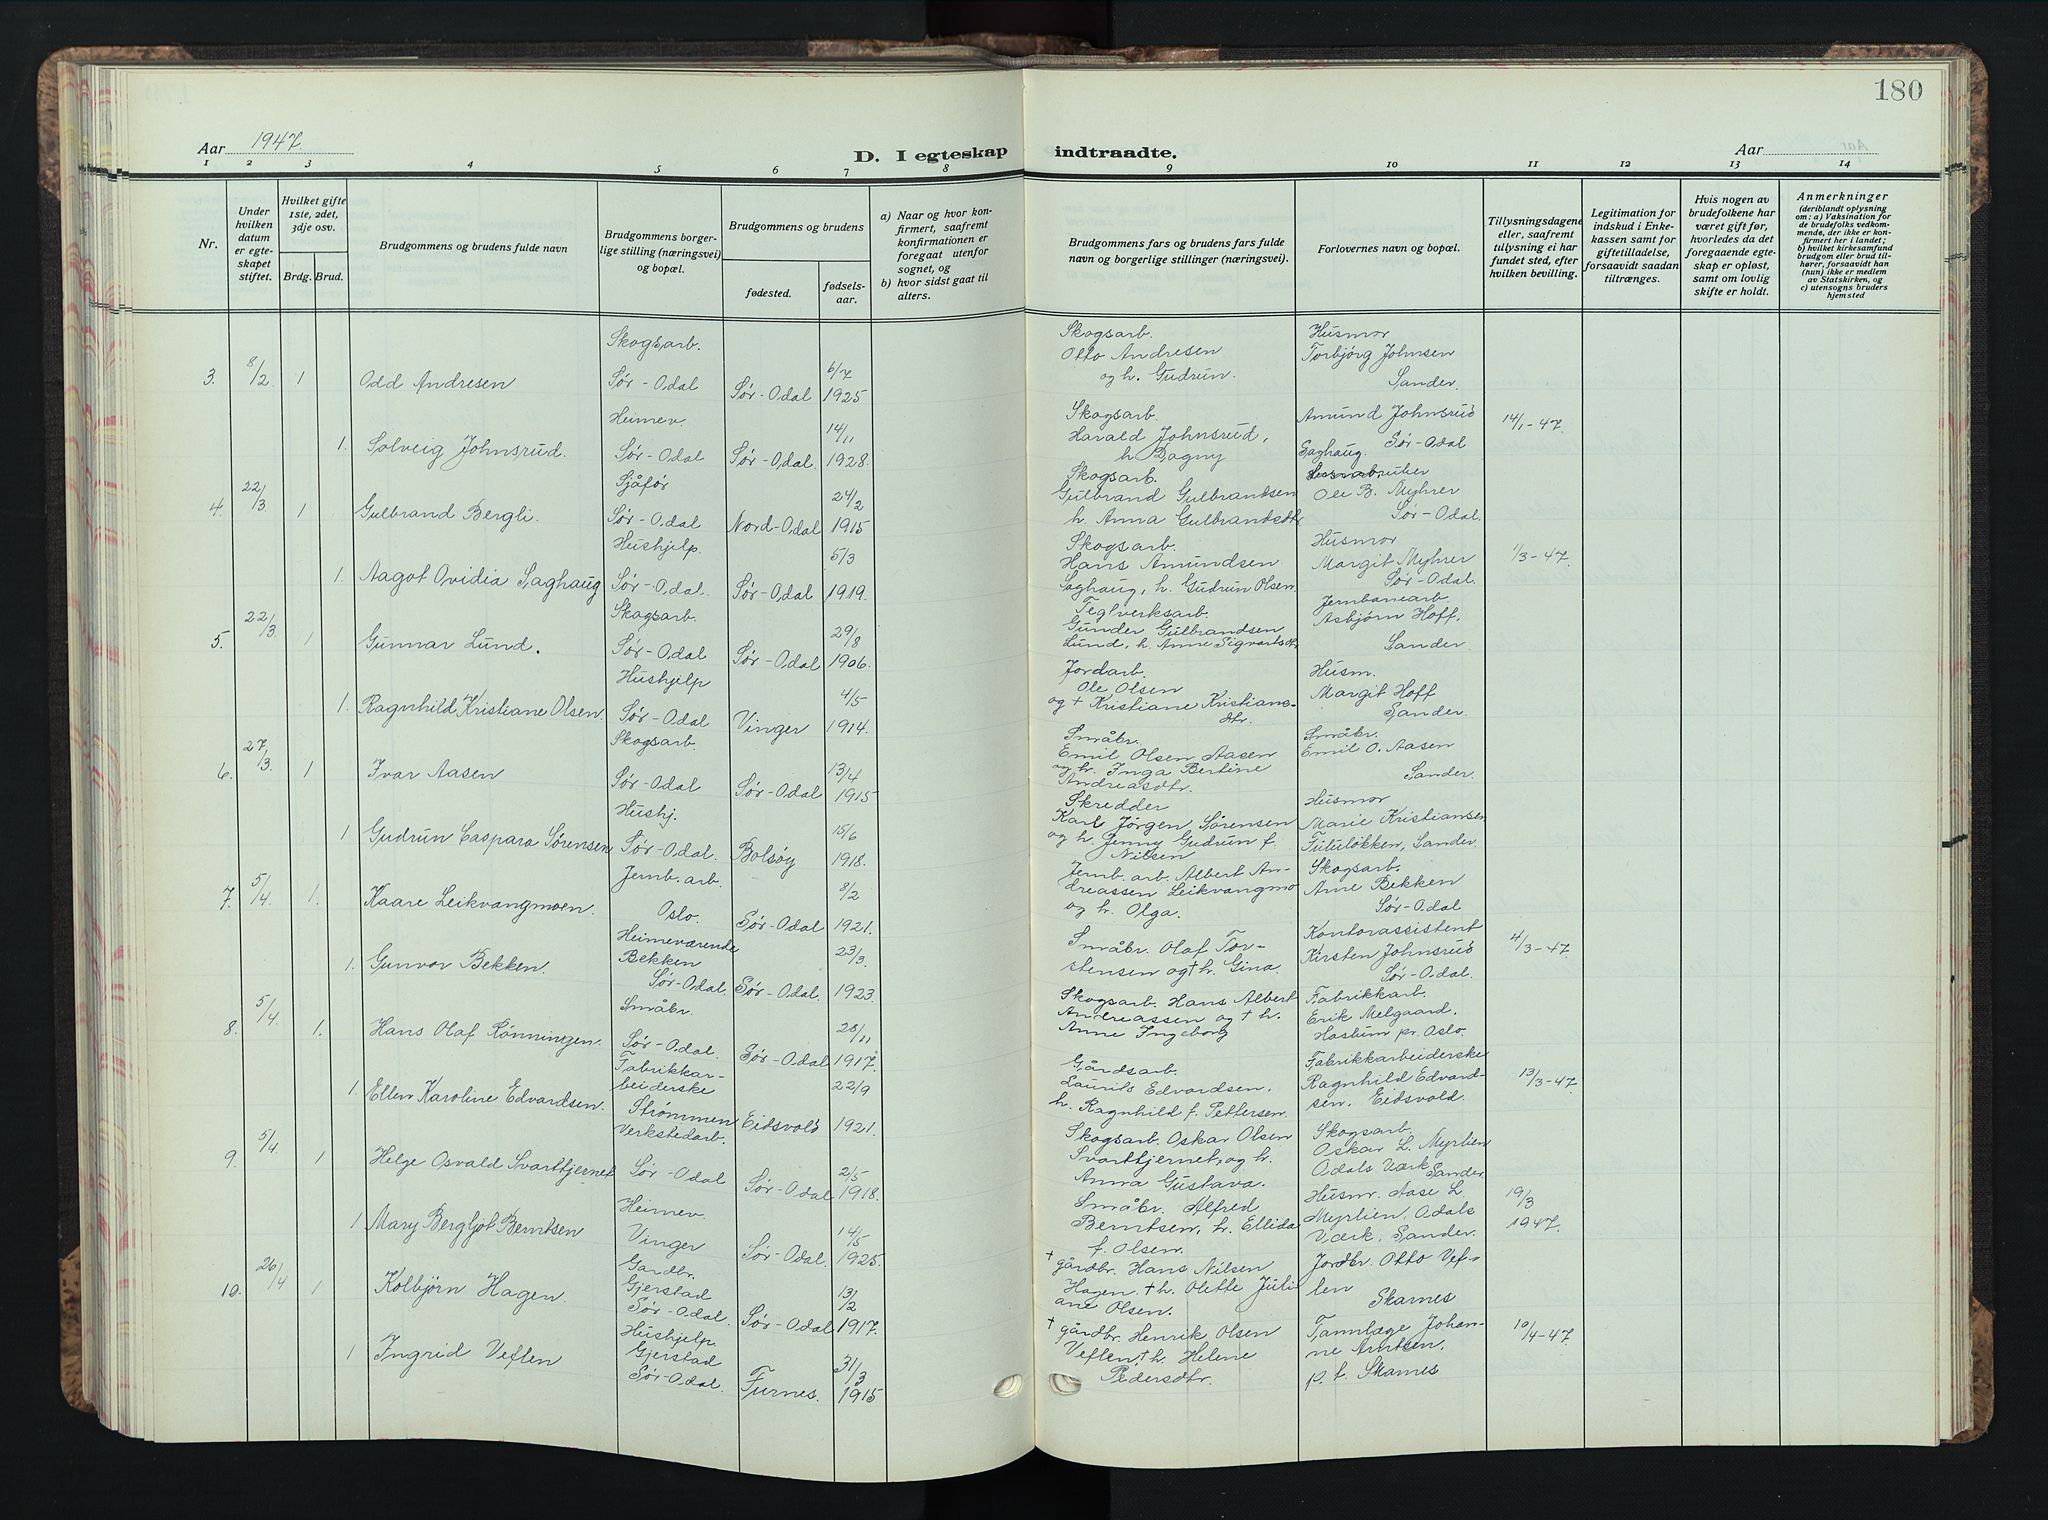 180
Aar 1947.
D. I egteskap indtraadte.
Aar
1 2 3 4 5 6 7 8 9 10 11 12 13 14
Nr.
Under hvilken datum er egteskapet stiftet.
Hvilket gifte 1ste, 2det, 3dje osv.
Brdg. Brud.
Brudgommens og brudens fulde navn
Brudgommens borgerlige stilling (næringsvei) og bopæl.
Brudgommens og brudens
fødested.
fødselsaar.
a) Naar og hvor konfirmert, saafremt konfirmationen er foregaat utenfor sognet, og
b) hvor sidst gaat til alters.
Brudgommens fars og brudens fars fulde navn og borgerlige stillinger (næringsvei).
Forlovernes navn og bopæl.
Tillysningsdagene eller, saafremt tillysning ei har fundet sted, efter hvilken bevilling.
Legitimation for indskud i Enkekassen samt for giftetilladelse, forsaavidt saadan tiltrænges.
Hvis nogen av brudefolkene har været gift før, hvorledes da det foregaaende egteskap er opløst, samt om lovlig skifte er holdt.
Anmerkninger
(deriblandt oplysning om: a) Vaksination for de brudefolks vedkommende, der ikke er konfirmert her i landet; b) hvilket kirkesamfund brudgom eller brud tilhører, forsaavidt han (hun) ikke er medlem av Statskirken, og c) utensogns bruders hjemsted
3. 8/2 1 Odd Andresen Skogsarb. Sør-Odal Sør-Odal 6/7 1925 Skogsarb. Otto Andresen og h. Gudrun. Husmor Torbjørg Johnsen Sander.
1. Solveig Johnsrud. Heimev. Sør-Odal Sør-Odal. 14/11 1928. Skogsarb. Harald Johnsrud, h Dagny Amund Johnsrud Sør-Odal 14/1-47.
4. 22/3. 1 Gulbrand Bergli. Sjåfør Sør-Odal Nord-Odal 24/2 1915 Skogsarb. Gulbrand Gulbrandsen h. Anna Gulbrandsdtr Saghaug. Ole B. Myhrer Sør-Odal.
1. Aagot Ovidia Saghaug Hushjelp. Sør-Odal. Sør-Odal 5/3 1919. Skogsarb. Hans Amundsen Saghaug, h. Gudrun Olsen. Husmor Margit Myhrer Sør-Odal. 1/3-47.
5. 22/3. 1 Gunnar Lund. Skogsarb. Sør-Odal Sør-Odal 29/8 1906. Teglverksarb. Gunder Gulbrandsen Lund, h. Anne Sigvartsdtr Jernbanearb. Asbjørn Hoff, Sander.
1. Ragnhild Kristiane Olsen. Hushjelp Sør-Odal Vinger 4/5 1914. Jordarb. Ole Olsen og + Kristiane Kristiansdtr. Husm. Margit Hoff Sander.
6. 27/3. 1 Ivar Aasen Skogsarb. Sør-Odal Sør-Odal 13/4 1915 Småbr. Emil Olsen Aasen og h. Inga Bertine Andreasdtr. Småbr. Emil O. Aasen Sander.
1 Gudrun Caspara Sørensen Hushj. Sør-Odal. Bolsøy 15/6 1918. Skredder Karl Jørgen Sørensen og h. Jenny Gudrun f. Nilsen Husmor Marie Kristiansen Fululøkken, Sander.
7. 5/4. 1. Kaare Leikvangmoen. Jernb. arb. Oslo. Sør-Odal 8/2 1921. Jernb. arb. Albert Andreassen Leikvangmo og h. Olga. Skogsarb. Arne Bekken Sør-Odal
1. Gunvor Bekken. Heimeværende Bekken Sør-Odal. Sør-Odal. 23/3. 1923. Småbr. Olaf Torstensen og + h. Gina. Kontorassistent Kirsten Johnsrud Sør-Odal. 4/3-47.
8. 5/4. 1. Hans Olaf Rønningen. Småbr. Sør-Odal. Sør-Odal 28/11 1917. Skogsarb. Hans Albert Andreassen og + h. Anne Ingeborg Fabrikkarb. Erik Melgaard. Haslum pr. Oslo.
1. Ellen Karoline Edvardsen. Fabrikkarbeiderske Strømmen Eidsvold 22/9 1921. Gårdsarb. Laurits Edvardsen, h. Ragnhild f. Pettersen. Fabrikkarbeiderske Ragnhild Edvardsen. Eidsvold. 13/3-47.
9. 5/4. 1 Helge Osvald Svarttjernet Verkstedarb. Sør-Odal Sør-Odal 2/5 1918. Skogsarb. Oskar Olsen Svarttjernet, og h. Anna Gustava. Skogsarb. Oskar L. Myrlien Odals Værk Sander.
1 Mary Bergljot Berntsen Heimev. Vinger Sør-Odal. 14/5 1925. Småbr. Alfred Berntsen, h. Ellida f. Olsen. Husmr. Aase L Myrlien, Odals Værk. Sander. 19/3 1947.
10. 26/4 1 Kolbjørn Hagen. Gardbr. Gjerstad Sør-Odal. Sør-Odal 13/2 1917. + gårdbr. Hans Nilsen Hagen, + h. Olette Juliane Olsen. Jordbr. Otto Veflen Skarnes
1 Ingrid Veflen Hushjelp. Gjerstad Sør-Odal. Furnes. 31/3 1915 + gårdbr. Henrik Olsen Veflen, + h. Helene Pedersdtr. Tannlæge Johanne Arntsen, p. t. Skarnes 10/4-47.